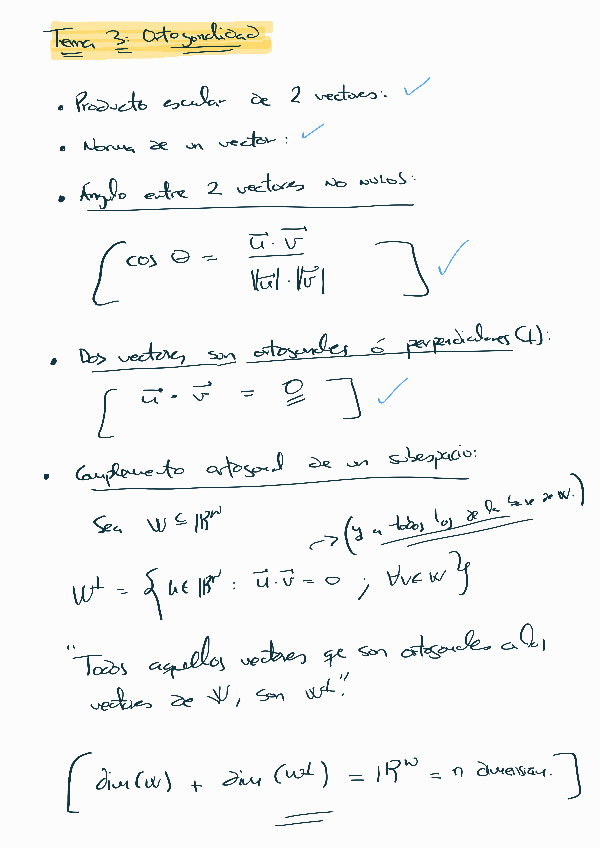 Tema 3: Ortogonalidad
• Producto escalar de 2 vectores: ✓
• Norma de un vector: ✓
• Ángulo entre 2 vectores NO NULOS:
[ cos θ = u⃗ · v⃗ / |u⃗| · |v⃗| ] ✓
• Dos vectores son ortogonales ó perpendiculares (⊥):
[ u⃗ · v⃗ = 0 ] ✓
• Complemento ortogonal de un subespacio:
Sea W ⊆ ℝⁿ
→ (y a todos los de la base de W.)
W⊥ = { u ∈ ℝⁿ : u⃗ · v⃗ = 0 ; ∀v ∈ W }
"Todos aquellos vectores qe son ortogonales a los
vectores de W, son W⊥."
[ dim(W) + dim(W⊥) = ℝⁿ = n dimension. ]